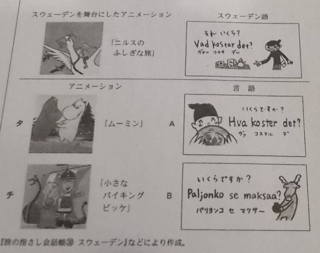 スウェーデンを舞台にしたアニメーション
スウェーデン語
『ニルスの
ふしぎな旅』
いくら?
Vad kostar det?
ヴァ コスタ デ
アニメーション
言語
タ
『ムーミン』
A
いくらですか?
Hva koster det?
ヴァ コステル デ
チ
『小さな
バイキング
ビッケ』
B
いくらですか?
Paljonko se maksaa?
パリヨンコ セ マクサー
『旅の指さし会話帳㊳ スウェーデン』などにより作成。